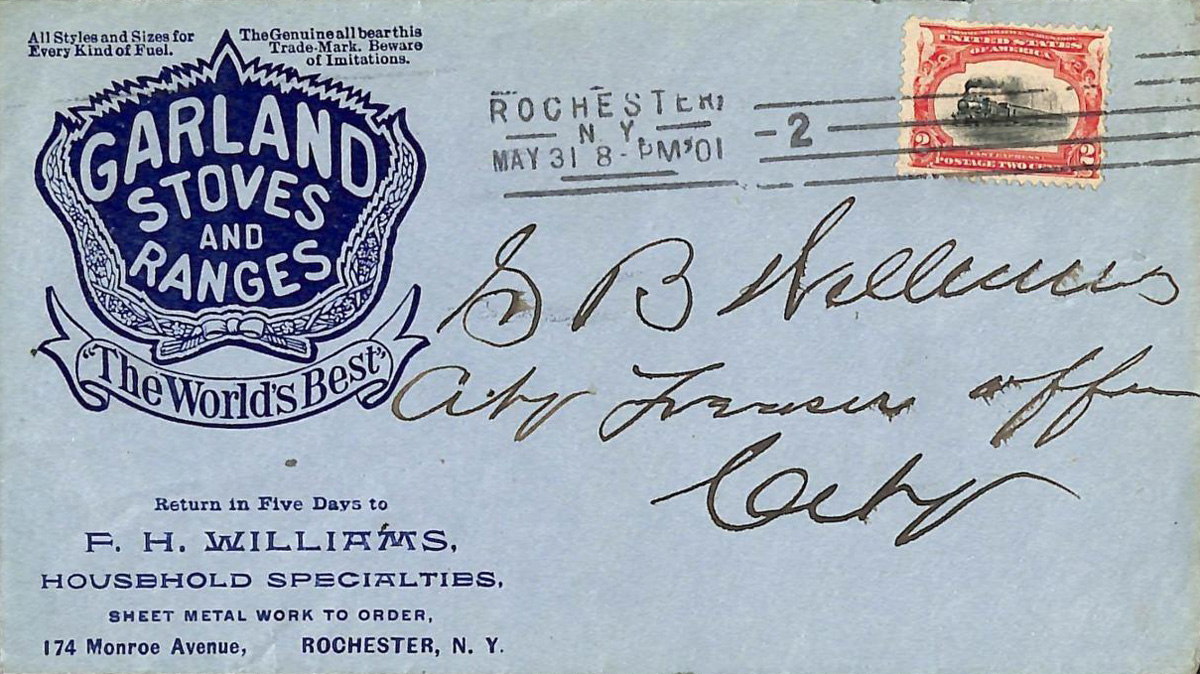 All Styles and Sizes for
Every Kind of Fuel.
The Genuine all bear this
Trade-Mark. Beware
of Imitations.
GARLAND
STOVES
AND
RANGES
"The World's Best"
ROCHESTER,
N. Y.
MAY 31 8-PM '01
2
UNITED STATES
OF AMERICA
2 2
FAST EXPRESS
POSTAGE TWO CENTS
B Williams
City
City
Return in Five Days to
F. H. WILLIAMS,
HOUSEHOLD SPECIALTIES,
SHEET METAL WORK TO ORDER,
174 Monroe Avenue, ROCHESTER, N. Y.